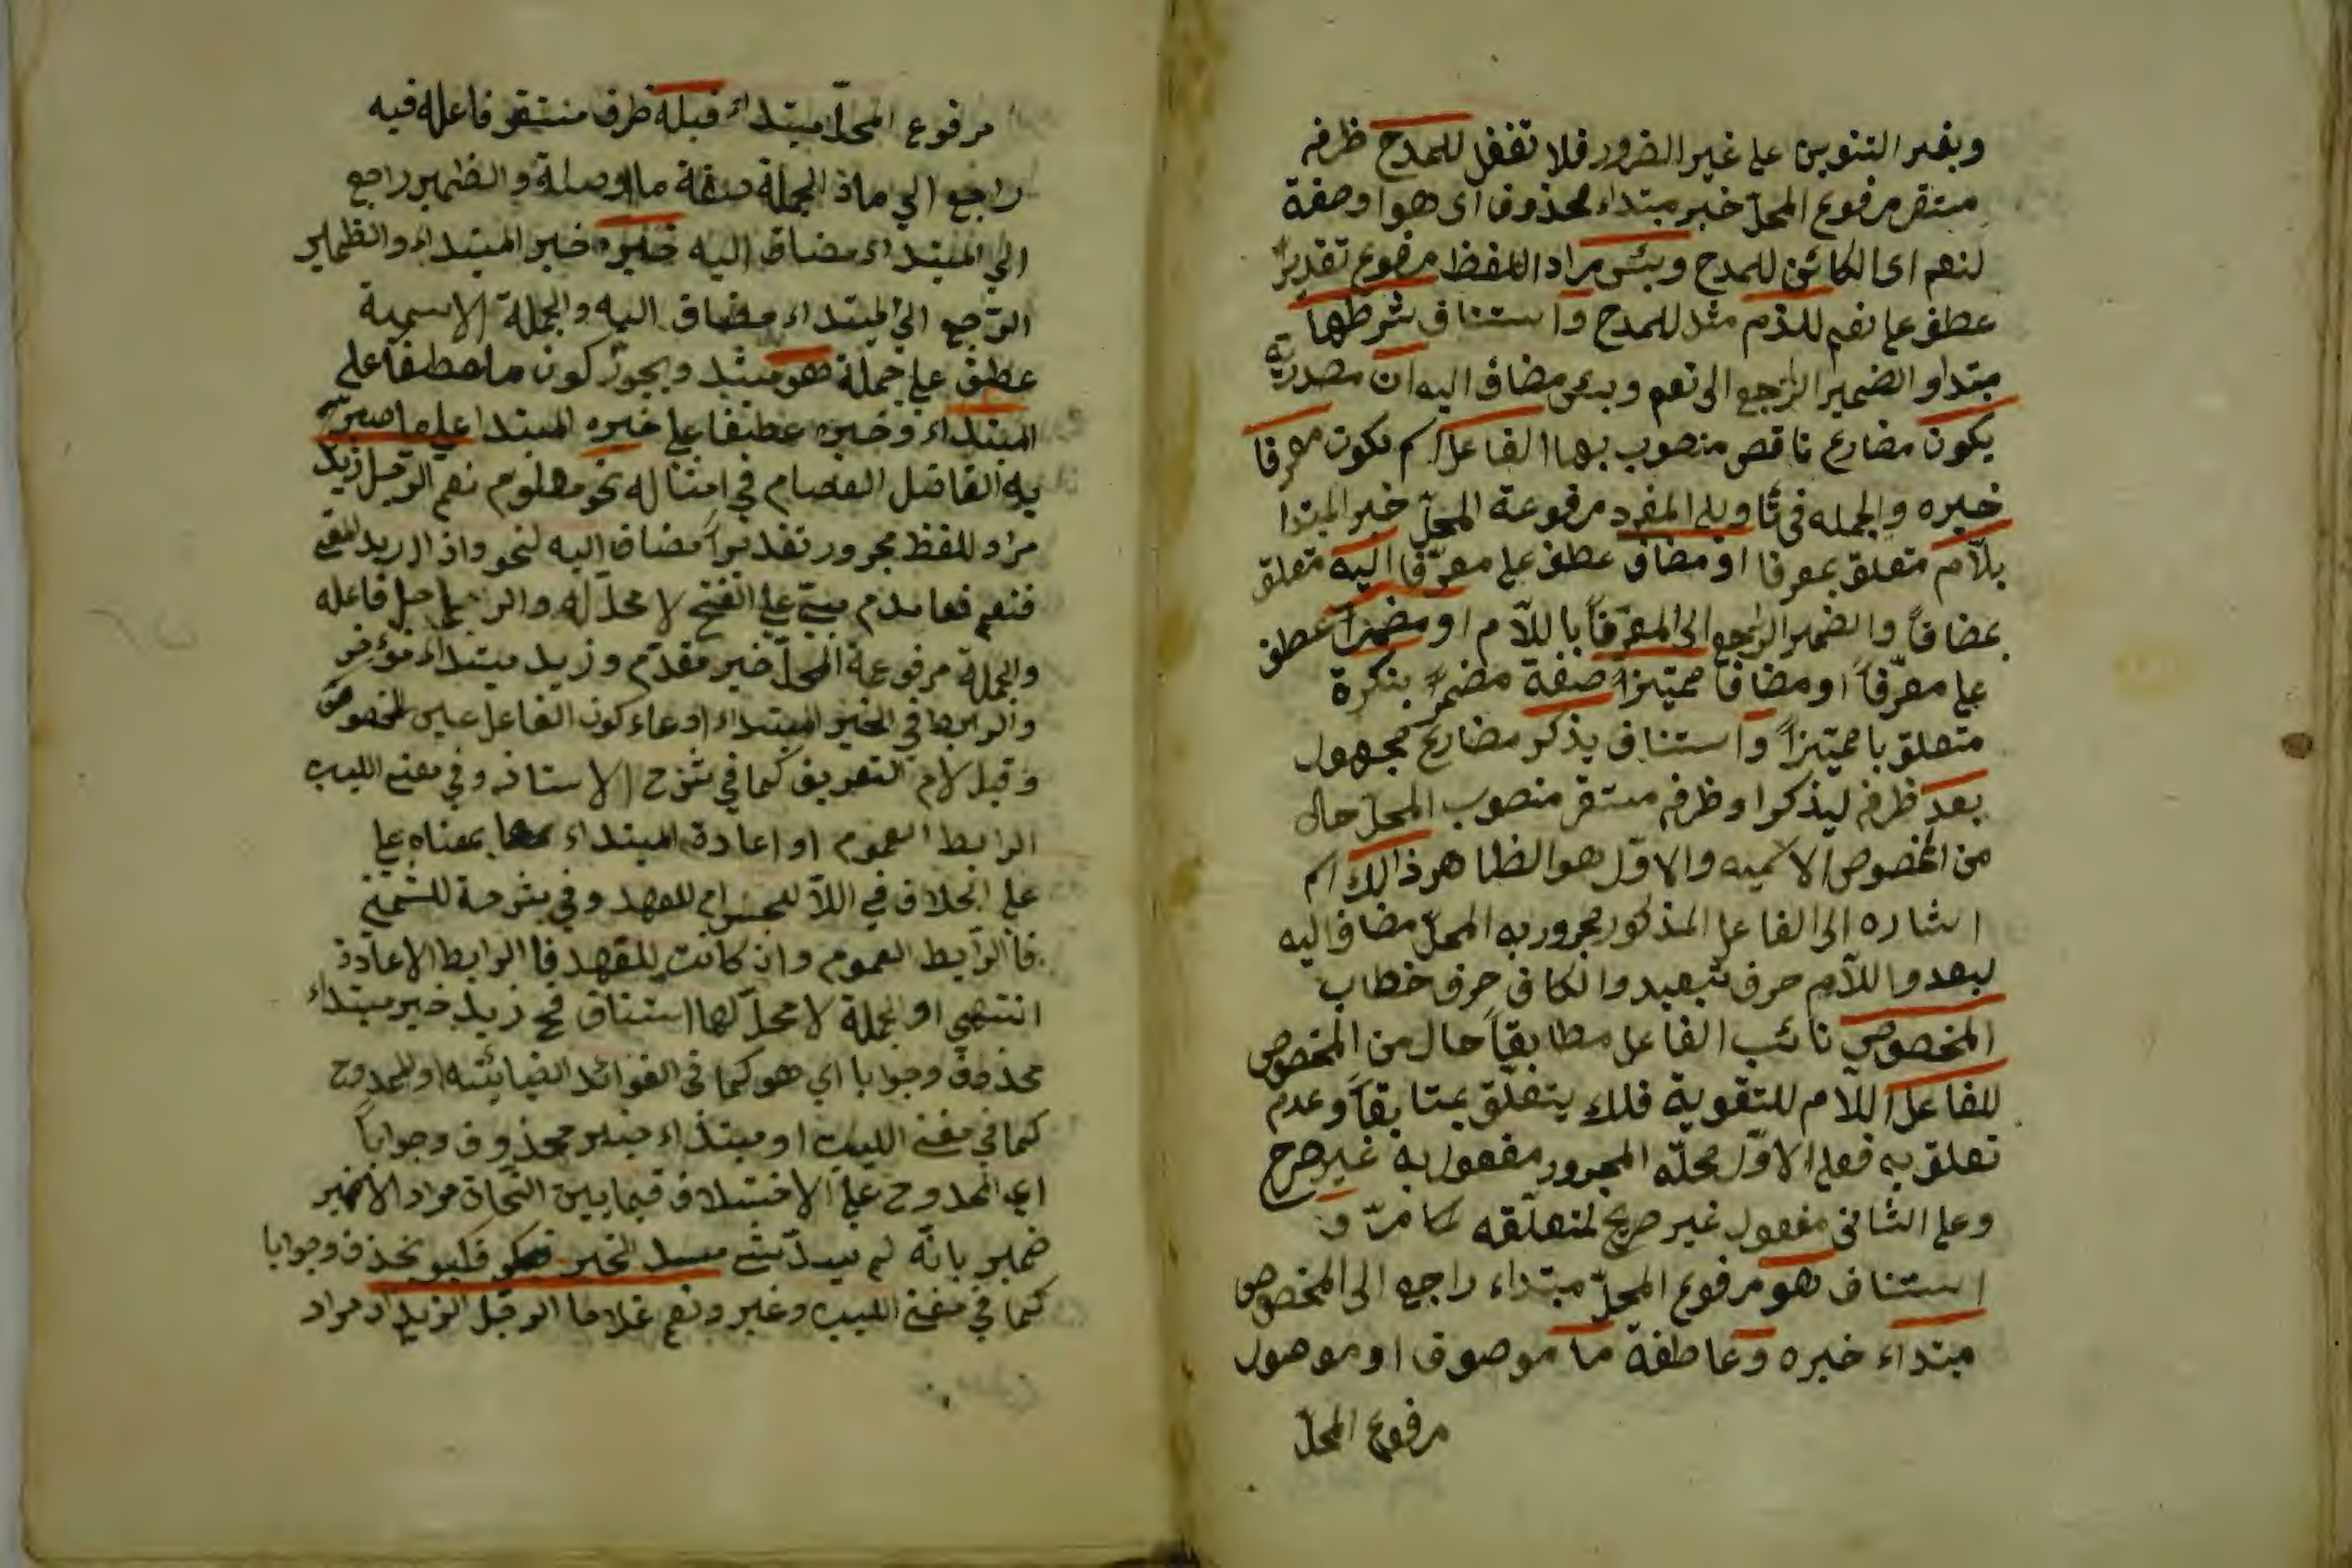 وبغير التنوين على غير الضرور فلا تغفل للمدح ظرفه
مستقر مرفوع المحلّ خبر مبتداء محذوف اى هو او صفة
لنعم اى الكائن للمدح وبئس مراد اللفظ مرفوع تقديرًا
عطف على نعم للذم مثل للمدح واستناف شرطها
مبتدا والضمير الراجع الى نعم وبئس مضاف اليه ان مصدريّة
يكون مضارع ناقص منصوب بها الفاعل اسم يكون معرفا
خبره والجمله فى تاويل المفرد مرفوعة المحلّ خبر المبتدا
بلآم متعلق بمعرفا او مضاف عطف على معرّفا اليه متعلق
بمضافاً والضمير الراجع الى المعرّفاً باللآم او مضمراً عطف
على معرّفاً او مضافا مميّزاً صفة مضمرًا بنكرة
متعلق با مميّزاً واستناف يذكر مضارع مجهول
بعد ظرفه ليذكر او ظرفه مستقر منصوب المحلّ حال
من المخصوص الاتميه والاوّل هو الظاهر ذالك اسم
اشاره الى الفاعل المذكور مجرور به المحلّ مضاف اليه
لبعد واللآم حرف تبعيد والكاف حرف خطاب
المخصوص نائب الفاعل مطابقاً حال من المخصوص
للفاعل اللآم للتقوية فلك يتعلّق بمتابقاً وعدم
تعلق به فعلى الاوّل محلّه المجرور مفعول به غير صرح
وعلى الثانى مفعول غير صريح لمتعلّقه كما مرّ و
استناف هو مرفوع المحلّ مبتداء راجع الى المخصوص
مبتداء خبره وعاطفة ما موصوف او موصول
مرفوع المحلّ
مرفوع المحلّ مبتداء قبله ظرف مستقر فاعله فيه
راجع الي ما فالجملة صفة ما او صلة والضمير راجع
الي المبتداء مضاف اليه خبره خبر المبتداء والظمير
الرّجع الي المبتداء مضاف اليه والجملة الاسمية
عطف على جملة هو مبتد ويجوز كون ما عطفا على
المبتداء وخبره عطفا على خبره المبتدا على ما صرّح
به الفاضل العصام في امثاله نحو معلوم نعم الرجل زيد
مراد للفظ مجرور تقديراً مضاف اليه لنحو واذا اريد المعنى
فنعم فعل مدم مبنيّ على الفتح لا محلّ له والرجل فاعله
والجملة مرفوعة المحلّ خبر مقدّم وزيد مبتداء مؤخر
والرابط في الخبر المبتداء ادعاء كون الفاعل عين المخصوص
وقيل لام التعريف كما في شرح الاستاذ وفي مغني اللبيب
الرابط العموم او اعادة المبتداء بمعناه على
على الخلاف في اللآ للجنس ام للعهد وفي شرحة للشمني
فالرّابط العموم وان كانت للعهد فا الرابط الاعادة
انتهي او الجملة لا محلّ لها استناف فح زيد خبر مبتداء
محذوف وجوبا اي هو كما فى الفوائد الضيائيّه او الممدوح
كما في مغني اللبيب او مبتداء خبر محذوف وجواباً
اي الممدوح على الاختلاف فيما بين النحاة مراد الاخير
ضمير بانّه لم يسدّ شئ مسد الخبر فكيو يحذف وجوابا
كما في مغني اللبيب وغير ونعم غلاما الرجل الزيد مراد